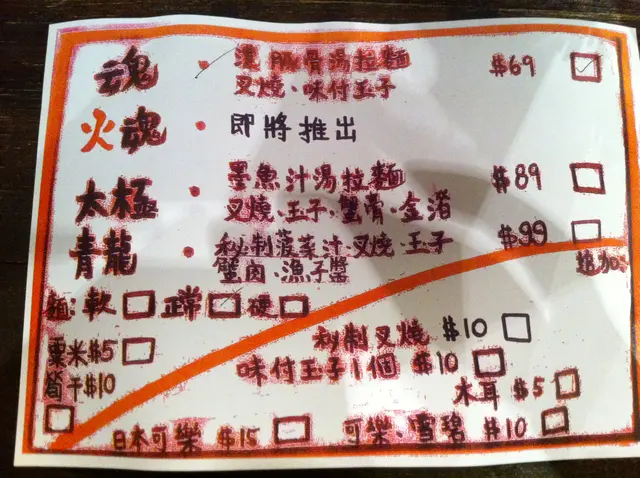 魂 濃豚骨湯拉麵 $69
叉燒·味付玉子
火魂 即將推出
太極 墨魚汁湯拉麵 $89
叉燒·玉子·蟹膏·金箔
青龍 秘制菠菜汁·叉燒·玉子 $99
蟹肉·漁子醬
追加:
麵: 軟 正常 硬
粟米$5
筍干$10
秘制叉燒 $10
味付玉子1個 $10
木耳 $5
日本可樂 $15 可樂·雪碧 $10